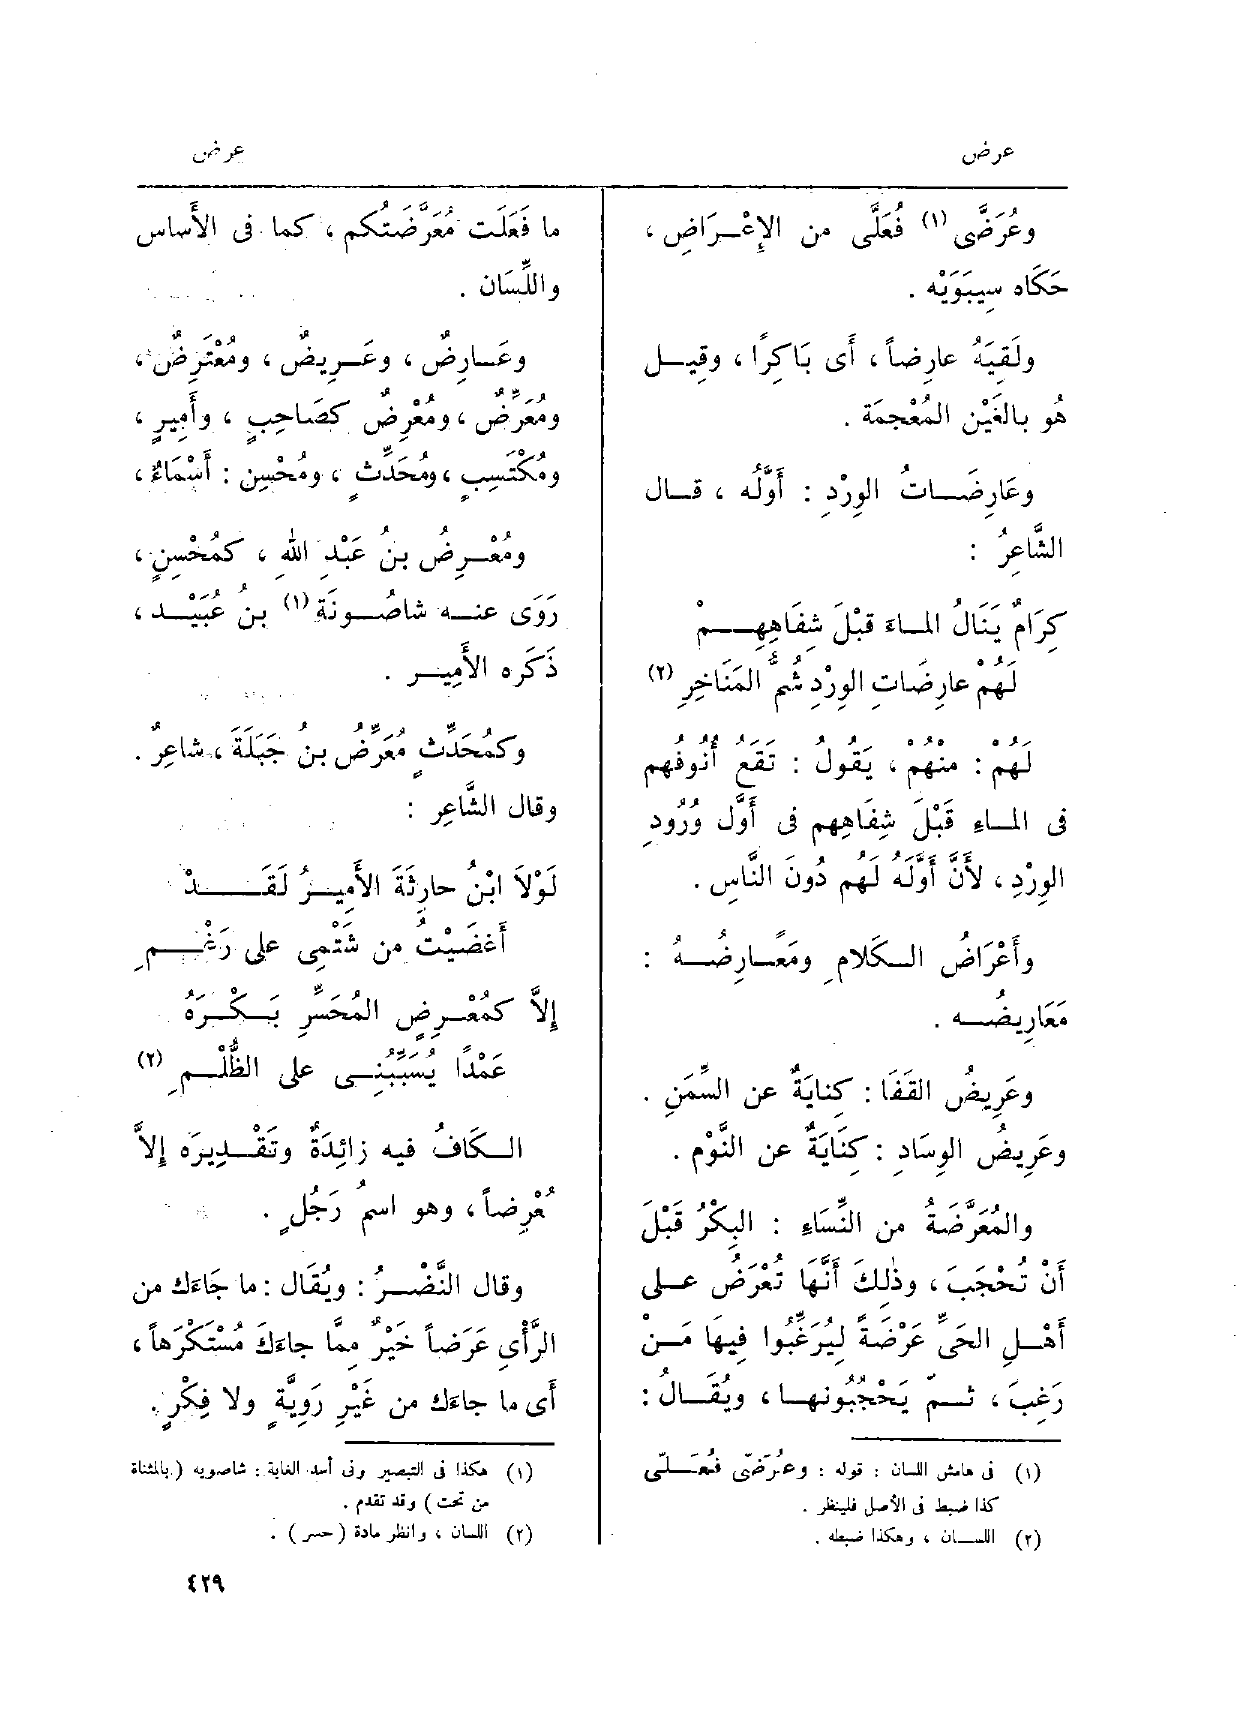 عرض
عرض
وعُرَضَّى (١) فُعَلَّى من الإِعْـرَاضِ ،
حَكَاه سِيبَوَيْه .
ولَقِيَهُ عارِضاً ، أَى بَاكِرًا ، وقِيـل
هُو بالغَيْن المُعْجمَة .
وعَارِضَـاتُ الوِرْدِ : أَوَّلُه ، قـال
الشَّاعِرُ :
كِرَامٌ يَنَالُ المـاءَ قَبْلَ شِفَاهِهِـمْ
لَهُمْ عارِضَاتِ الوِرْدِ شُمُّ المَنَاخِرِ (٢)
لَهُمْ : مِنْهُم ، يَقُول : تَقَعُ أُنُوفُهم
فى المـاءِ قَبْلَ شِفَاهِهم فى أَوَّل وُرُودِ
الوِرْدِ ، لأَنَّ أَوَّلَهُ لَهُم دُونَ النَّاسِ .
وأَعْرَاضُ الـكَلامِ ومَعَـارِضُـهُ :
مَعَارِيضُـه .
وعَرِيضُ القَفَا : كِنايَةٌ عن السِّمَنِ .
وعَرِيضُ الوِسَادِ : كِنَايَةٌ عن النَّوْم .
والمُعَرَّضَةُ من النِّسَاءِ : البِكْرُ قَبْلَ
أَنْ تُحْجَبَ ، وذٰلِكَ أَنَّهَا تُعْرَضُ عـلى
أَهْـلِ الحَىِّ عَرْضَةً لِيُرَغِّبُوا فِيهَا مَـنْ
رَغِبَ ، ثـم يَحْجُبُونهـا ، ويُقَـالُ :
(١) فى هامش اللسان : قوله : وعُرَضّى فُعَـلَّى
كذا ضبط فى الأصل فلينظر .
(٢) اللسـان ، وهكذا ضبطه .
ما فَعَلَت مُعَرَّضَتُكم ، كما فى الأَساس
واللِّسَان .
وعَـارِضٌ ، وعَـرِيضٌ ، ومُعْتَرِضٌ ،
ومُعَرِّضٌ ، ومُعْرِضٌ كصَاحِبٍ ، وأَمِيرٍ ،
ومُكْتَسِبٍ ، ومُحَدِّثٍ ، ومُحْسِنٍ : أَسْمَاءٌ ،
ومُعْـرِضُ بنُ عَبْدِ اللهِ ، كمُحْسِنٍ ،
رَوَى عنـه شاصُـونَة (١) بنُ عُبَيْـد ،
ذَكَره الأَمِيـر .
وكمُحَدِّثٍ مُعَرِّضُ بنُ جَبَلَةَ ، شاعِرٌ .
وقال الشَّاعِر :
لَوْلاَ ابْنُ حارِثَةَ الأَمِيـرُ لَقَـدْ
أَغضَيْتُ من شَتْمِى على رَغْـمِ
إِلاَّ كمُعْـرِضٍ المُحَسِّرِ بَـكْـرَهُ
عَمْدًا يُسَبِّبُنِـى على الظُّلْـمِ (٢)
الـكَافُ فيه زائِدَةٌ وتَقْـدِيرَه إِلاَّ
مُعْرِضاً ، وهو اسمُ رَجُلٍ .
وقال النَّضْـرُ : ويُقَال : ما جَاءَك من
الرَّأْىِ عَرَضاً خَيْرٌ مِمَّا جاءَكَ مُسْتَكْرَهاً ،
أَى ما جاءَك من غَيْرِ رَوِيَّةٍ ولا فِكْرٍ .
(١) هكذا فى التبصير وفى أسد الغابة : شاصويه ( بالمثناة
من تحت ) وقد تقدم .
(٢) اللسان ، وانظر مادة ( حسر ) .
٤٢٩